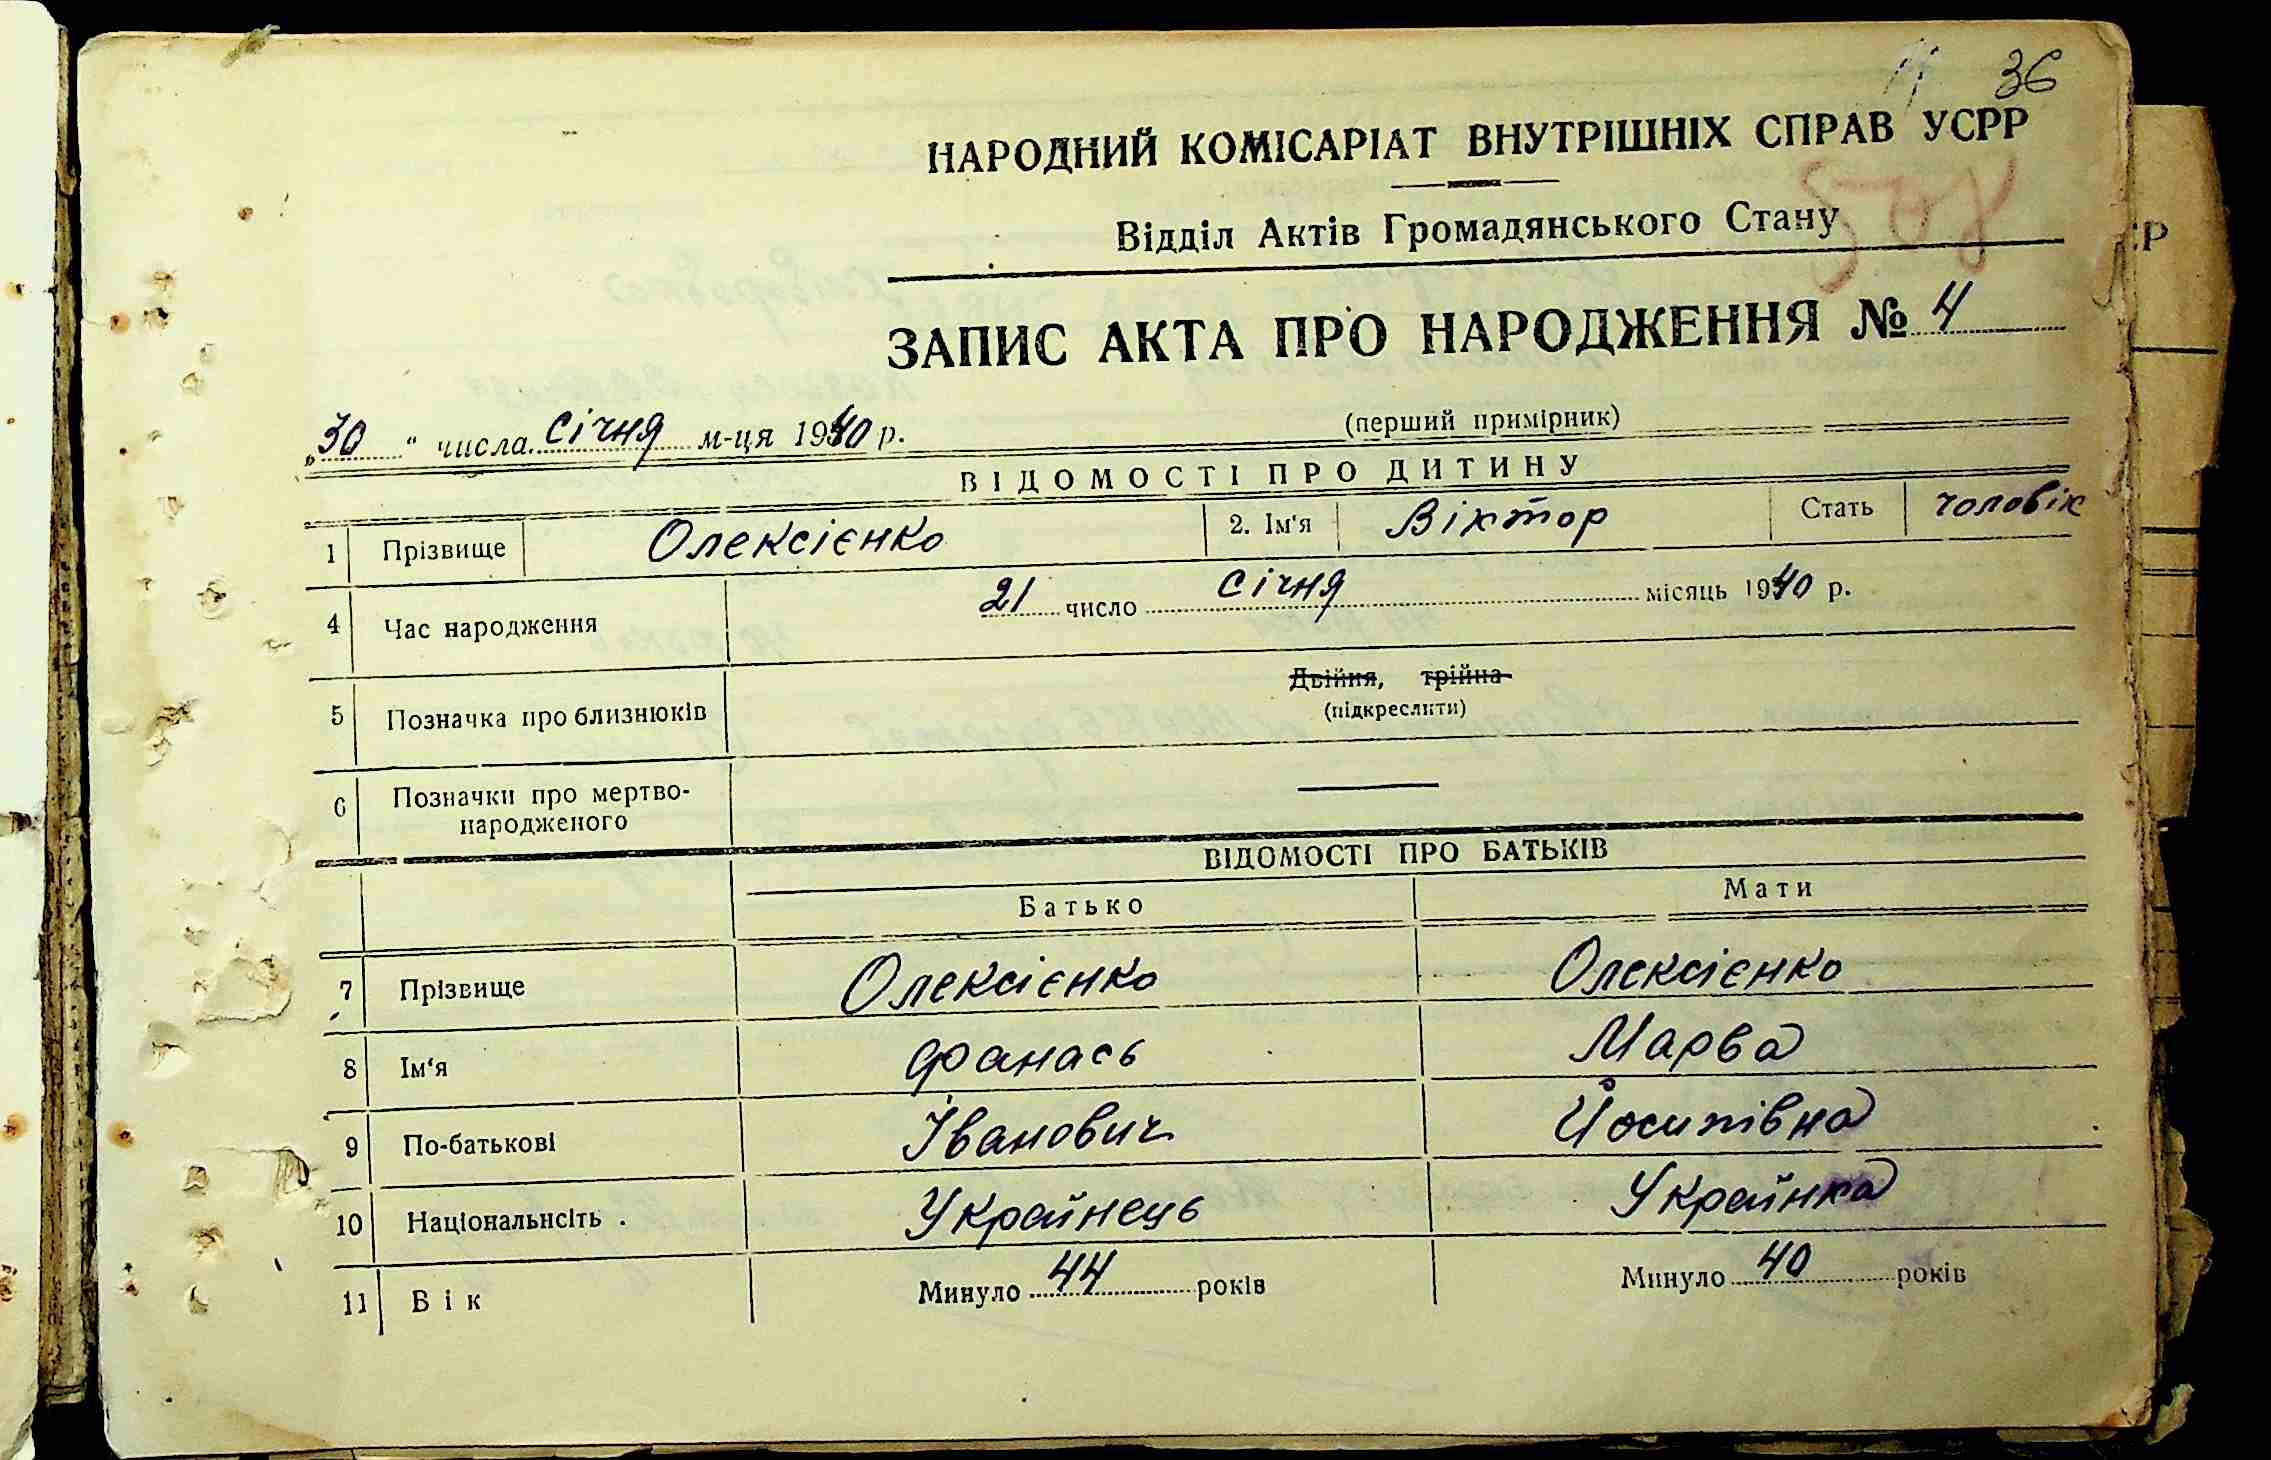 36
НАРОДНИЙ КОМІСАРІАТ ВНУТРІШНІХ СПРАВ УСРР
Відділ Актів Громадянського Стану
ЗАПИС АКТА ПРО НАРОДЖЕННЯ № 4
„30" числа січня м-ця 1940 р. (перший примірник)
ВІДОМОСТІ ПРО ДИТИНУ
1 Прізвище Олексієнко 2. Ім'я Віктор Стать чоловік
4 Час народження 21 число січня місяць 1940 р.
5 Позначка про близнюків Двійня, трійна
(підкреслити)
6 Позначки про мертво-
народженого —
ВІДОМОСТІ ПРО БАТЬКІВ
Батько Мати
7 Прізвище Олексієнко Олексієнко
8 Ім'я Фанась Марва
9 По-батькові Іванович Йосипівна
10 Національнсіть . Українець Українка
11 Вік Минуло 44 років Минуло 40 років
СР